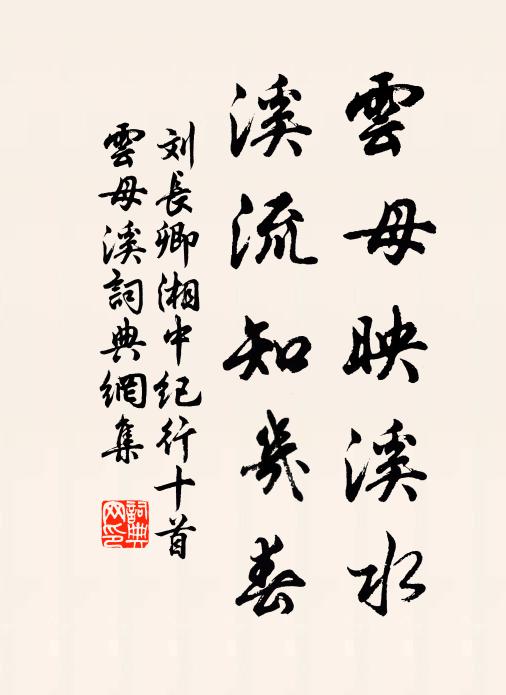 雲母映溪水
溪流知幾春
刘長卿湘中紀行十首
雲母溪詞典網集
詞典网印